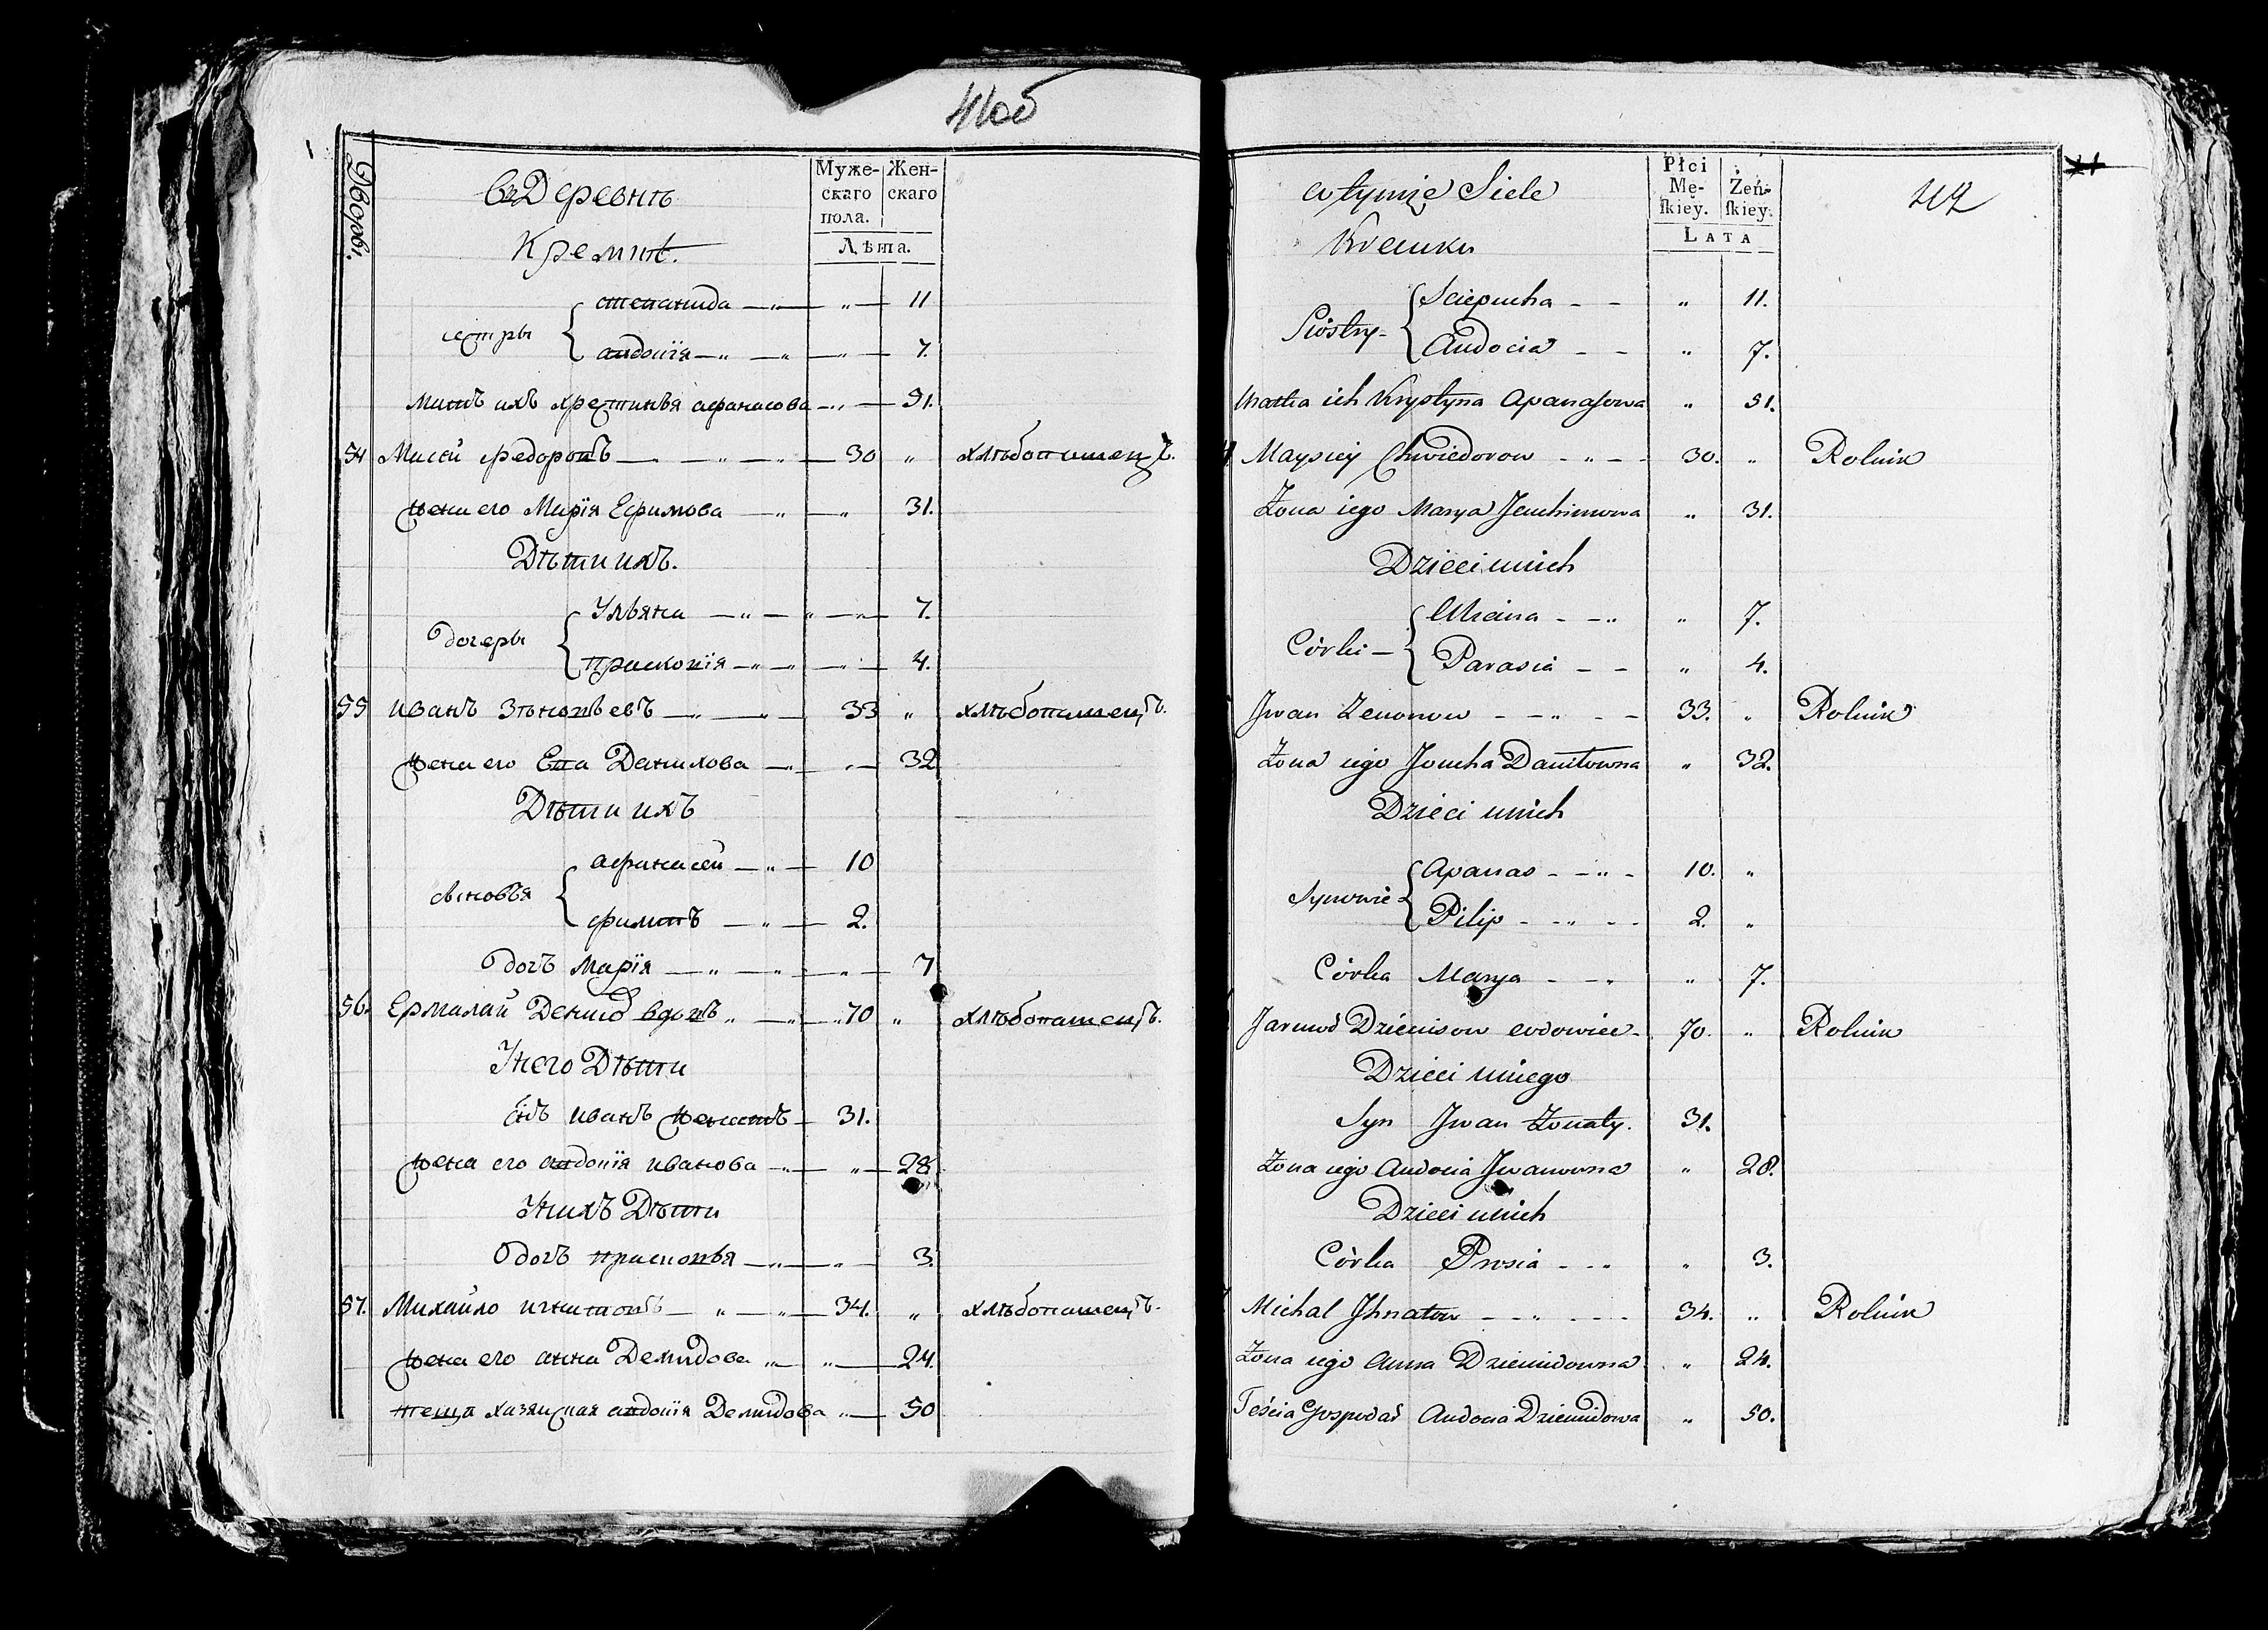 41об
Дворы.
въ Деревнѣ
Муже-
скаго
пола.
Жен-
скаго
Кремнѣ.
Лѣта.
степанида — " — " — 11
сестры
авдотія — " — " — " — 7.
мать ихъ хрестинья афанасова — " — 51.
54 Мисей федоровъ — " — " — 30 " хлѣбопашецъ.
жена его Марія Ефимова — " — " 31.
Дѣти ихъ.
Ульяна — " — " — " — 7.
дочеры
прасковія — " — " — " — 4.
55 иванъ Зѣновьевъ — " — " — 33 " хлѣбопашецъ.
жена его Данилова — " — " — 32
Дѣти ихъ
афанасей — " — 10
сыновья
филипъ — " — 2.
дочь Марія — " — " — " — 7
56. Ермалай Денисо вдовъ " — " — " 70 " хлѣбопашецъ.
У него Дѣти
сынъ иванъ женатъ — 31.
жена его авдотія иванова — " — " — 28
У нихъ Дѣти
дочь прасковья — " — " — 3.
57. Михайло игнатовъ — " — " — 34. " хлѣбопашецъ.
жена его анна Демидова " — " — 24.
теща хазяиская авдотія Демидова " — 50
w tymże Siele
Płci
Mę-
skiey.
Żeń-
skiey.
42
LATA
Sciepucha - - " 11.
Siostry -
Audocia - - " 7.
Matka ich Krystyna Apanasowa " 51.
Maysiey Chwiedorow - " - - 30. " Rolnik
Żona iego Marya Jauchimowa " 31.
Dzieci u nich
Ulicina - - " " 7.
Córki -
Parasia - - " 4.
Jwan Zenonow - - " - - 33. " Rolnik
Żona iego Daniłowna " 32.
Dzieci u nich
Apanas - - " - 10. "
Synowie
Pilip - - " - - 2. "
Córka Marya - - " " 7.
Jarmoś Dzienisow wdowiec - 70. " Rolnik
Dzieci u niego
Syn Jwan Żonaty. 31.
Żona iego Audocia Jwanowna " 28.
Dzieci u nich
Córka Prosia - - " " 3.
Michal Jhnatow - - " - - - 34. " Rolnik
Żona iego Anna Dziemidowna " 24.
Teścia Gospodar Audocia Dziemidowa " 50.